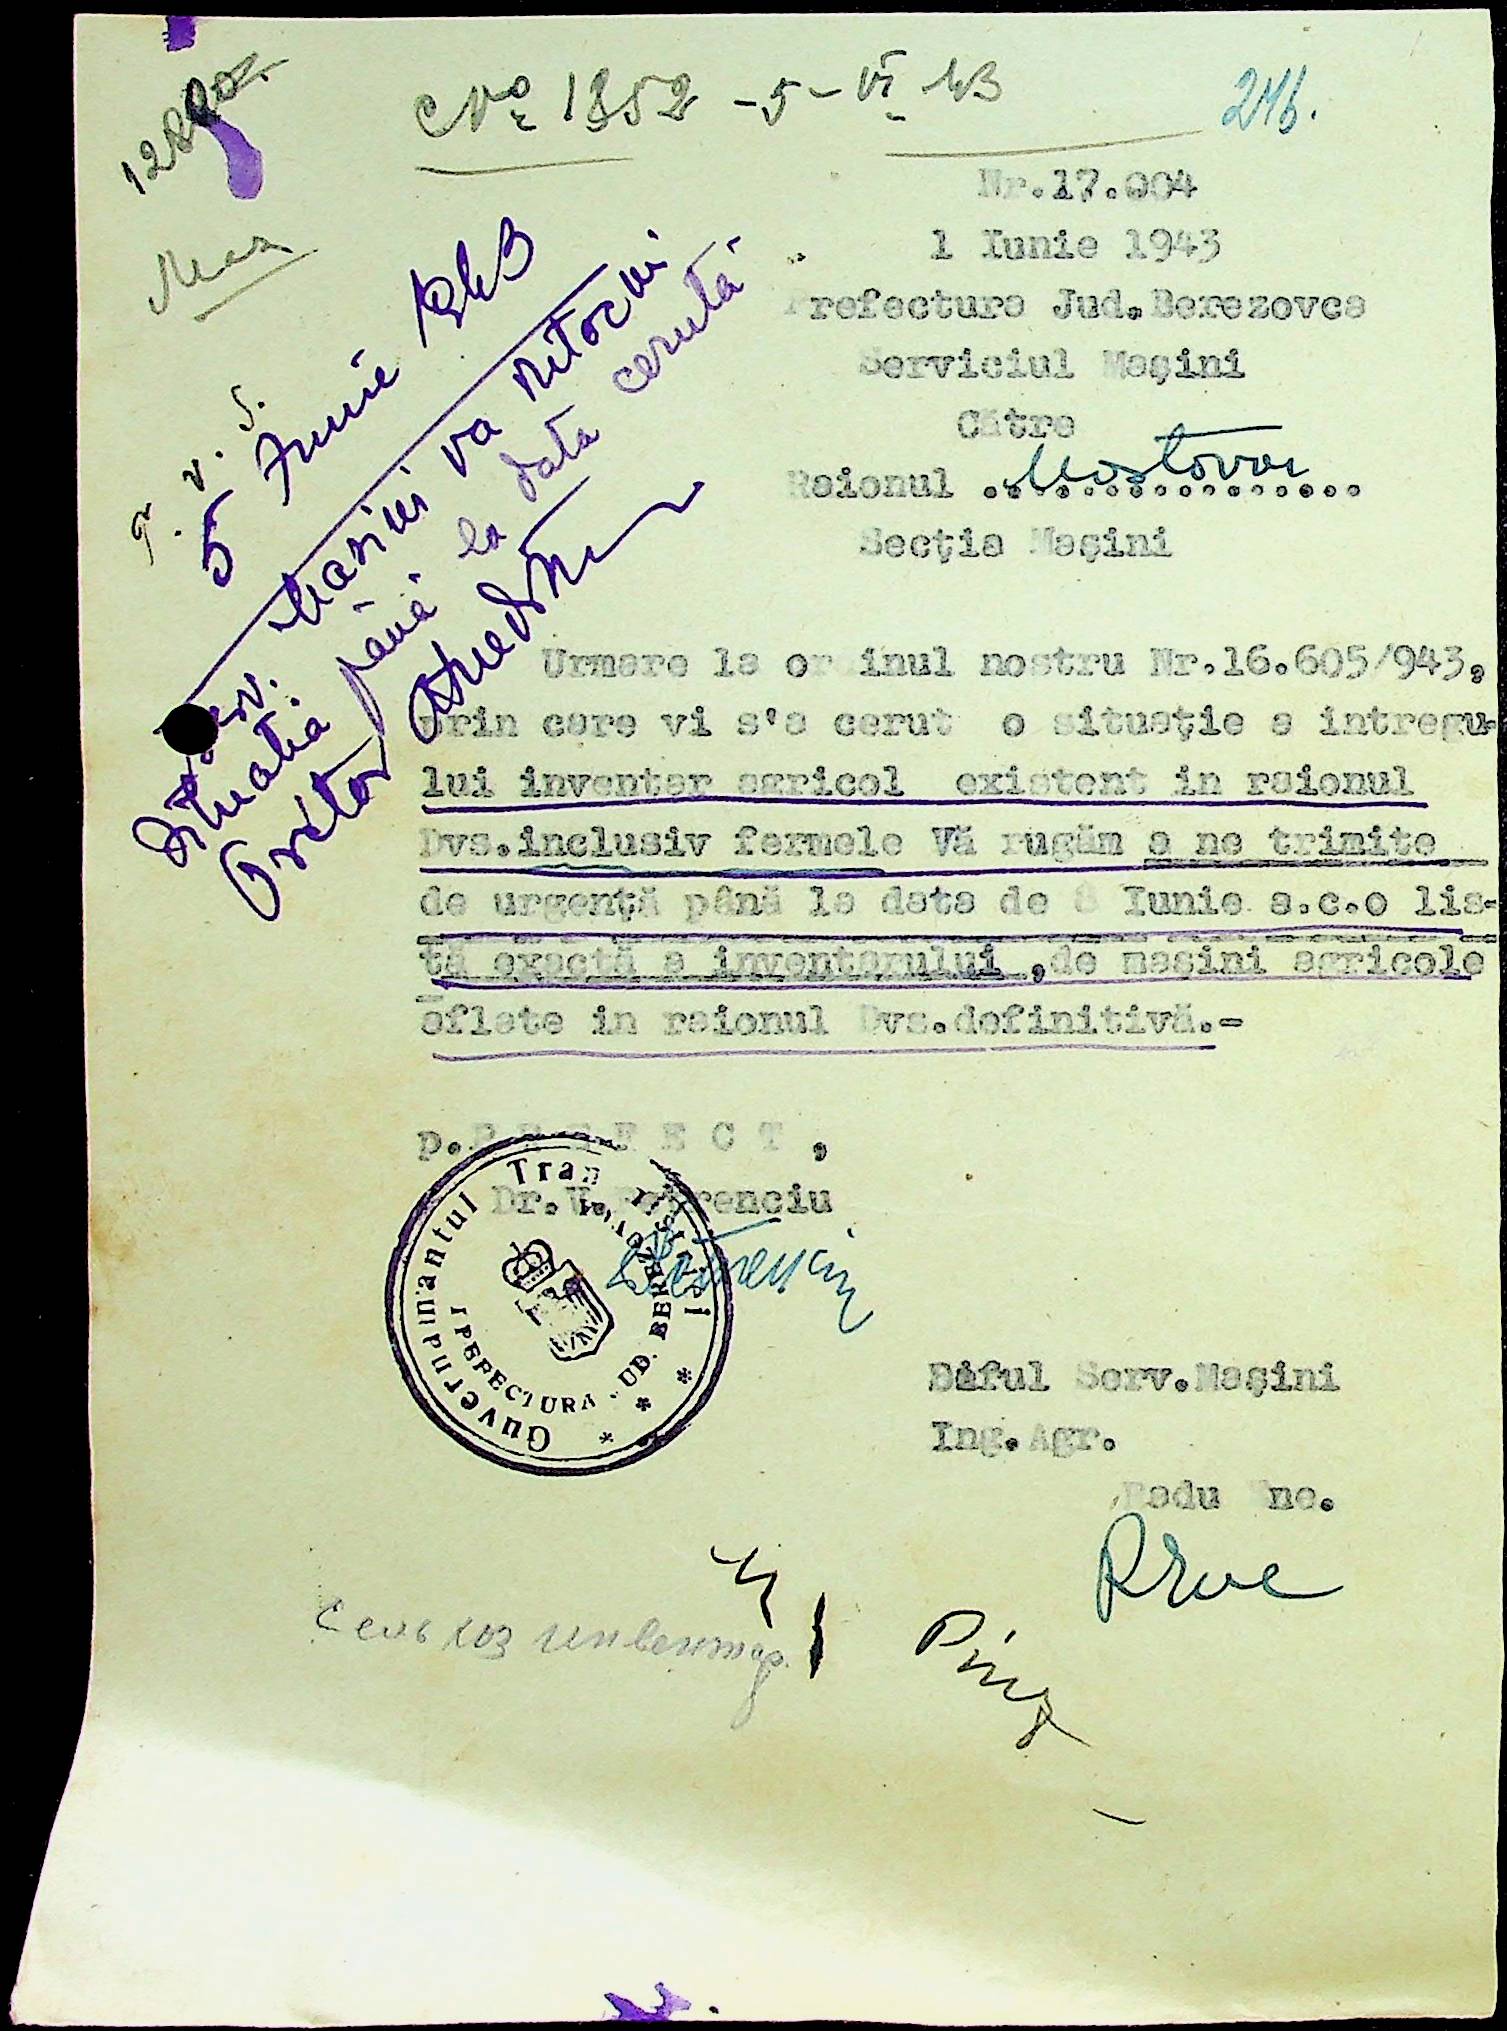 № 1852 - 5 - VI 43
216.
Nr.17.004
1 Iunie 1943
Prefectura Jud.Berezovca
Serviciul Maşini
Către
Raionul ..Mostovoi..............
Secţia Maşini
5 Iunie 1943
Serv. Masini va intocmi
situatia până la data cerută
Pretor
Urmare la ordinul nostru Nr.16.605/943,
prin care vi s'a cerut o situaţie a intregu-
lui inventar agricol existent in raionul
Dvs.inclusiv fermele Vă rugăm a ne trimite
de urgenţă până la data de 8 Iunie a.c.o lis-
tă exactă a inventarului ,de masini agricole
aflate in raionul Dvs.definitivă.-
p.PREFECT,
Dr.V.Petrenciu
Guvernamantul Transnistriei
PREFECTURA JUD. BEREZOVCA
Şeful Serv.Maşini
Ing.Agr.
Radu Ene.
REne
Сельхоз инвентар.